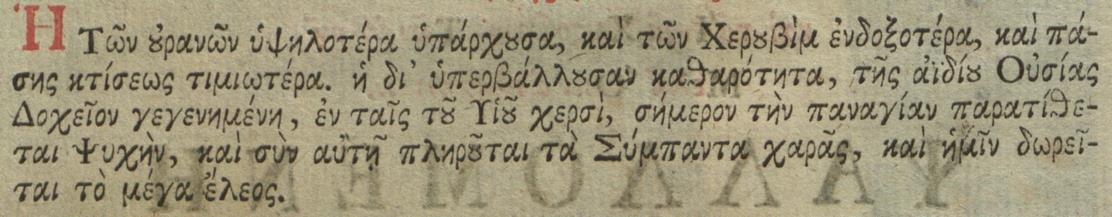 Ἡ Τῶν ȣ̓ρανῶν ὑψηλοτέρα ὑπάρχȣσα, καὶ τῶν Χερȣβὶμ ἐνδοξοτέρα, καὶ πά-
σης κτίσεως τιμιωτέρα. ἡ δι' ὑπερβάλλȣσαν καθαρότητα, τῆς ἀϊδίȣ Οὐσίας
Δοχεῖον γεγενημένη, ἐν ταῖς τȣ͂ Υἱȣ͂ χερσὶ, σήμερον τὴν παναγίαν παρατίθε-
ται Ψυχὴν, καὶ σὺν αὐτῇ πληρȣ͂ται τὰ Σύμπαντα χαρᾶς, καὶ ἡμῖν δωρεῖ-
ται τὸ μέγα ἔλεος.